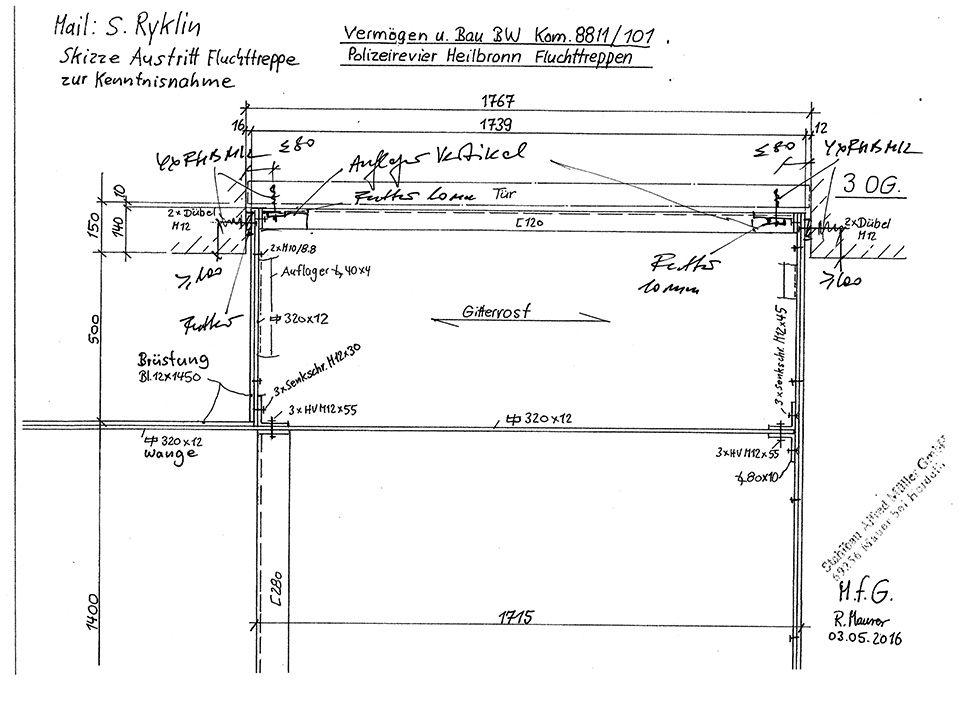 Mail: S. Ryklin
Skizze Austritt Fluchttreppe
zur Kenntnisnahme
Vermögen u. Bau BW Kom. 8811/101
Polizeirevier Heilbronn Fluchttreppen
1767
16
1739
12
≤80
≤80
Auflager Vertikal
3 OG.
10
150
140
Futter 10mm
Tür
[120
2xDübel
M12
2xDübel
M12
2xM10/8.8
≥100
Auflager 40x4
Futter
10mm
≥100
Futter
320x12
Gitterrost
500
3xSenkschr. M12x45
Brüstung
Bl.12x1450
3xSenkschr. M12x30
3xHVM12x55
320x12
320x12
Wange
3xHVM12x55
80x10
Stahlbau Alfred Müller GmbH
69256 Mauer bei Heidelb
[280
1400
1715
M.f.G.
R. Maurer
03.05.2016